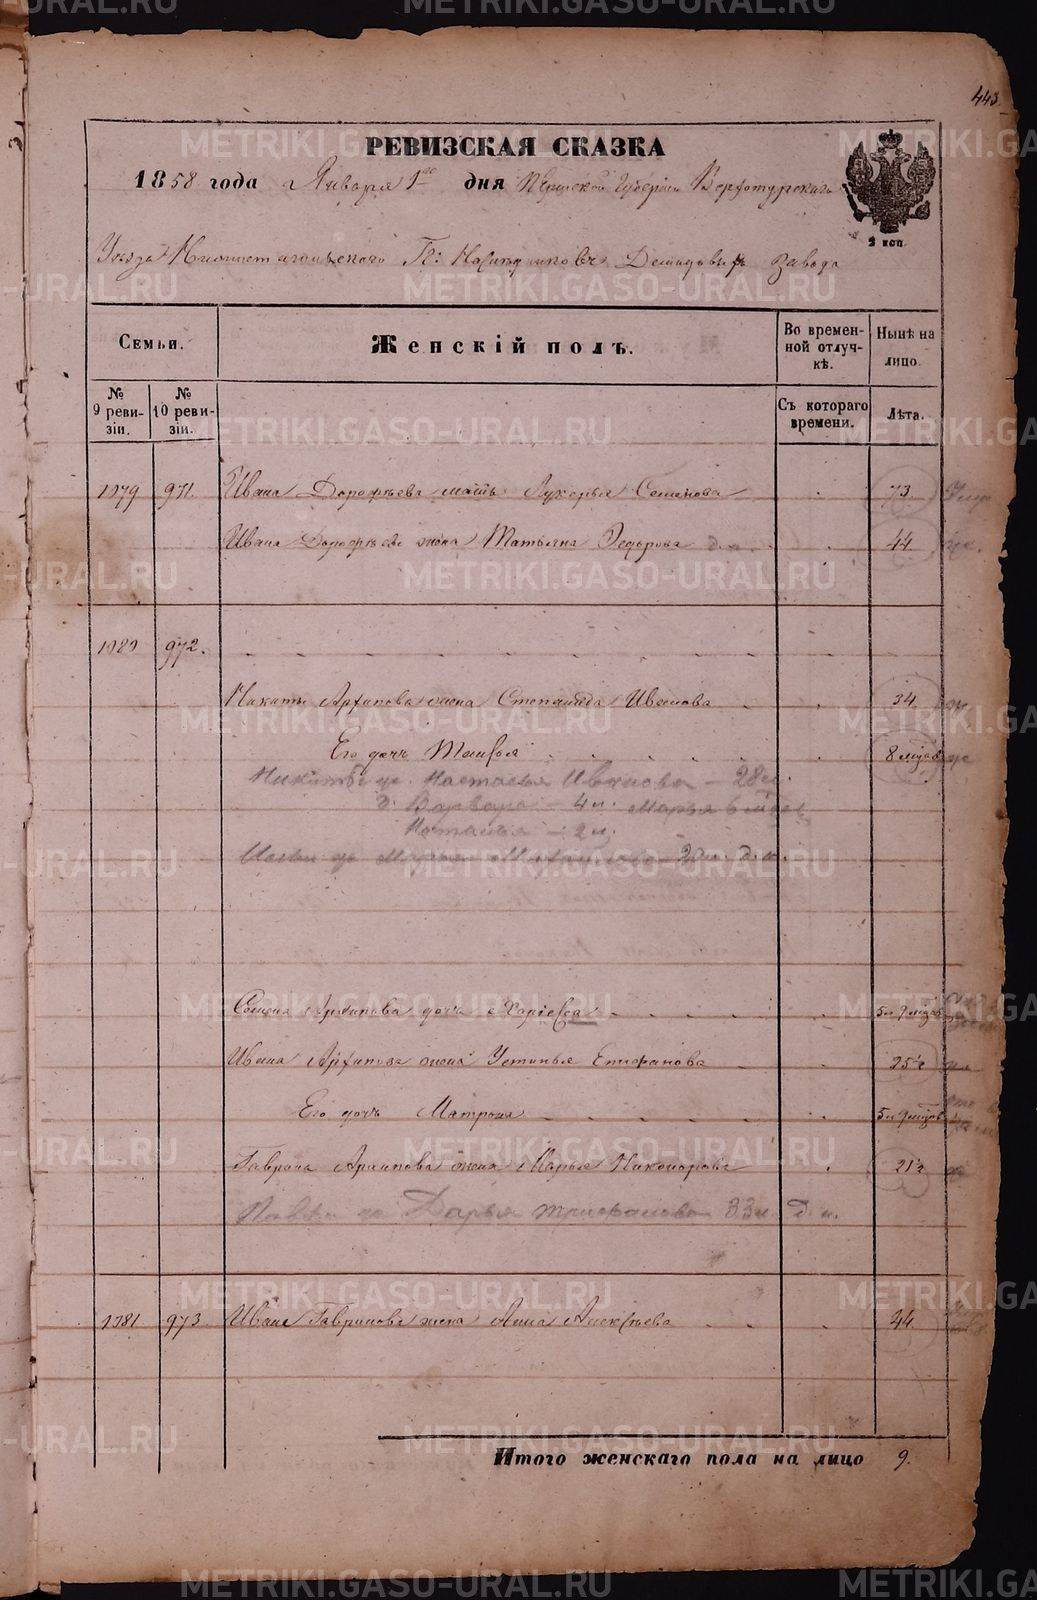 443
РЕВИЗСКАЯ СКАЗКА
1858 года Января 1го дня Пермской Губернии Верхотурскаго
Уезда Нижнетагильского Гг: Наследниковъ Демидовыхъ завода
2 коп.
Семьи.
Женскій полъ.
Во времен-
ной отлуч-
кѣ.
Нынѣ на
лицо.
№
9 реви-
зіи.
№
10 реви-
зіи.
Съ котораго
времени.
Лѣта.
1079 971. Ивана Дорофѣева мать Лукерья Семенова 73
Ивана Дорофѣева жена Татьяна Федорова 44
972.
Никиты Архипова жена Степанида Иванова 34
Его дочь Таисья 8 мѣсяц
Никиты Настасья Иванова – 28 л.
д. Варвара – 4 л. Марья 6
Наталья – 2 л.
Марья
Семена Архипова дочь 5 л 9 мѣсяц
Ивана Архипова жена Устинья Епифанова 25½
Его дочь Матрона 5 л 9 мѣсяц
Гаврила Архипова жена Марья Никонорова 21½
Дарья Трифанова 33 л
1081 973 Ивана Гаврилова жена Анна Алексѣева 44
Итого женскаго пола на лицо 9.
METRIKI.GASO-URAL.RU